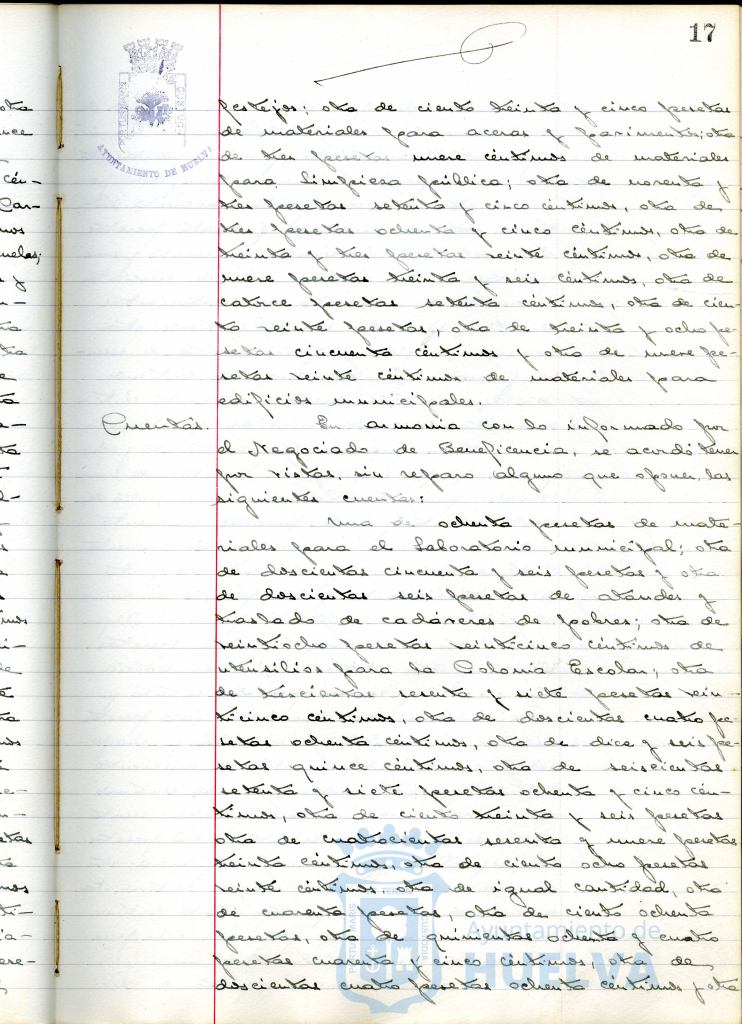 17
AYUNTAMIENTO DE HUELVA
festejos; otra de ciento treinta y cinco pesetas
de materiales para aceras y pavimentos; otra
de tres pesetas nueve céntimos de materiales
para limpieza pública; otra de noventa y
tres pesetas setenta y cinco céntimos, otra de
tres pesetas ochenta y cinco céntimos, otra de
treinta y tres pesetas veinte céntimos, otra de
nueve pesetas treinta y seis céntimos, otra de
catorce pesetas setenta céntimos, otra de cien-
to veinte pesetas, otra de treinta y ocho pe-
setas cincuenta céntimos y otra de nueve pe-
setas veinte céntimos de materiales para
edificios municipales.
Cuentas. En armonia con lo informado por
el Negociado de Beneficencia, se acordó tener
por vistas, sin reparo alguno que oponer, las
siguientes cuentas:
Una de ochenta pesetas de mate-
riales para el Laboratorio municipal; otra
de doscientas cincuenta y seis pesetas y otra
de doscientas seis pesetas de ataudes y
traslado de cadáveres de pobres; otra de
veintiocho pesetas veinticinco céntimos de
utensilios para la Colonia Escolar; otra
de trescientas sesenta y siete pesetas vein-
ticinco céntimos, otra de doscientas cuatro pe-
setas ochenta céntimos, otra de diez y seis pe-
setas quince céntimos, otra de seiscientas
setenta y siete pesetas ochenta y cinco cén-
timos, otra de ciento treinta y seis pesetas
otra de cuatrocientas sesenta y nueve pesetas
treinta céntimos, otra de ciento ocho pesetas
veinte céntimos otra de igual cantidad, otra
de cuarenta pesetas, otra de ciento ochenta
pesetas, otra de quinientas ochenta y cuatro
pesetas cuarenta y cinco céntimos, otra de
doscientas cuatro pesetas ochenta céntimos y otra
Ayuntamiento de
HUELVA